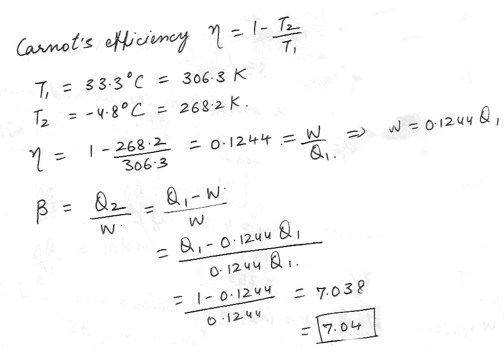 Carnot's efficiency η = 1 - T₂/T₁
T₁ = 33.3°C = 306.3 K
T₂ = -4.8°C = 268.2 K.
η = 1 - 268.2/306.3 = 0.1244 = W/Q₁. ⇒ W = 0.1244 Q₁
β = Q₂/W. = Q₁ - W./W
= Q₁ - 0.1244 Q₁/0.1244 Q₁.
= 1 - 0.1244/0.1244 = 7.038
= 7.04